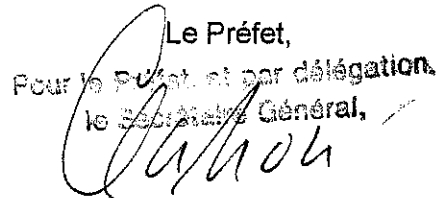 Le Préfet,
Pour le Préfet, et par délégation,
le Secrétaire Général,